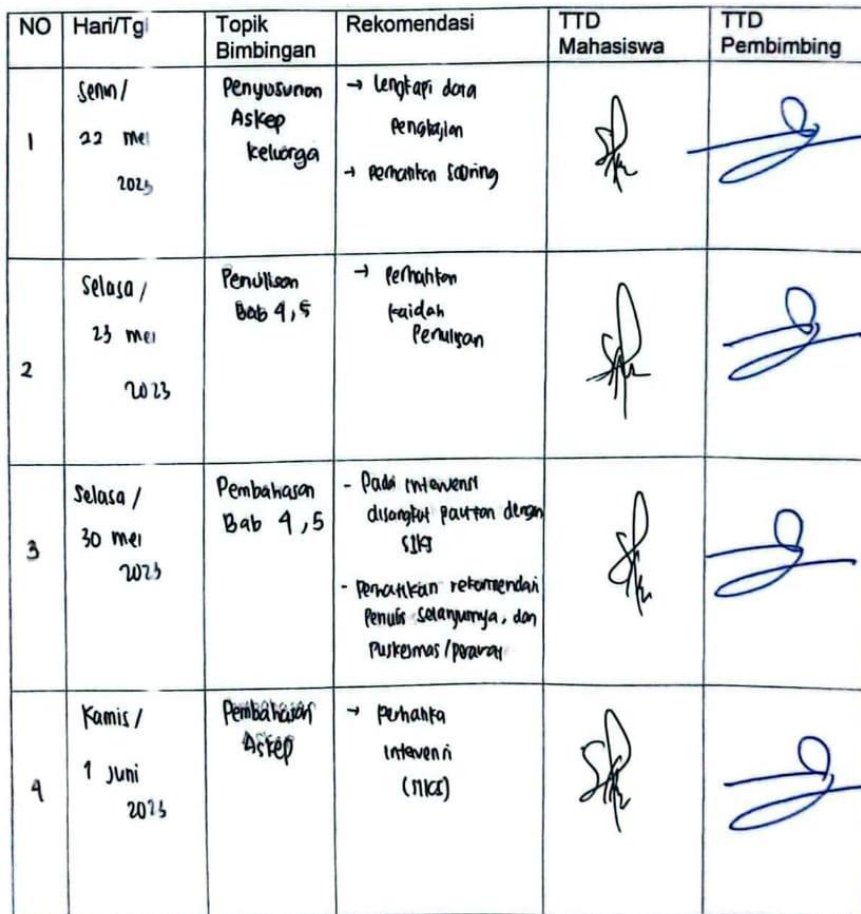 NO Hari/Tgl Topik Bimbingan Rekomendasi TTD Mahasiswa TTD Pembimbing
1
Senin /
22 mei
2023
Penyusunan
Askep
keluarga
→ lengkapi data
pengkajian
→ perhatikan scoring
2
Selasa /
23 mei
2023
Penulisan
Bab 4,5
→ perhatikan
kaidah
Penulisan
3
Selasa /
30 mei
2023
Pembahasan
Bab 4,5
- Pada intervensi
disangkut pautkan dengan
SIKI
- Perhatikan rekomendasi
Penulis selanjutnya, dan
Puskesmas /perawat
4
Kamis /
1 Juni
2023
Pembahasan
Askep
→ perhatika
intevensi